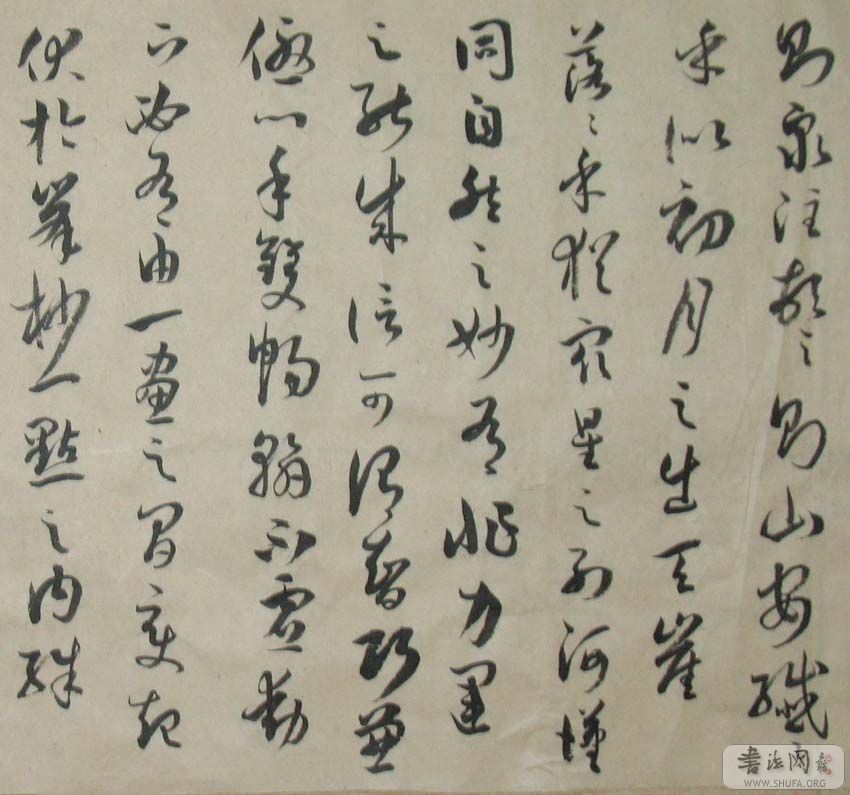 則泉注頓之則山安纖〻
乎似初月之出天崖
落〻乎猶眾星之列河漢
同自然之妙有非力運
之能成信可謂智巧兼
優心手雙暢翰不虛動
下必有由一畫之間變起
伏於峯杪一點之內殊
書法网
WWW.SHUFA.ORG